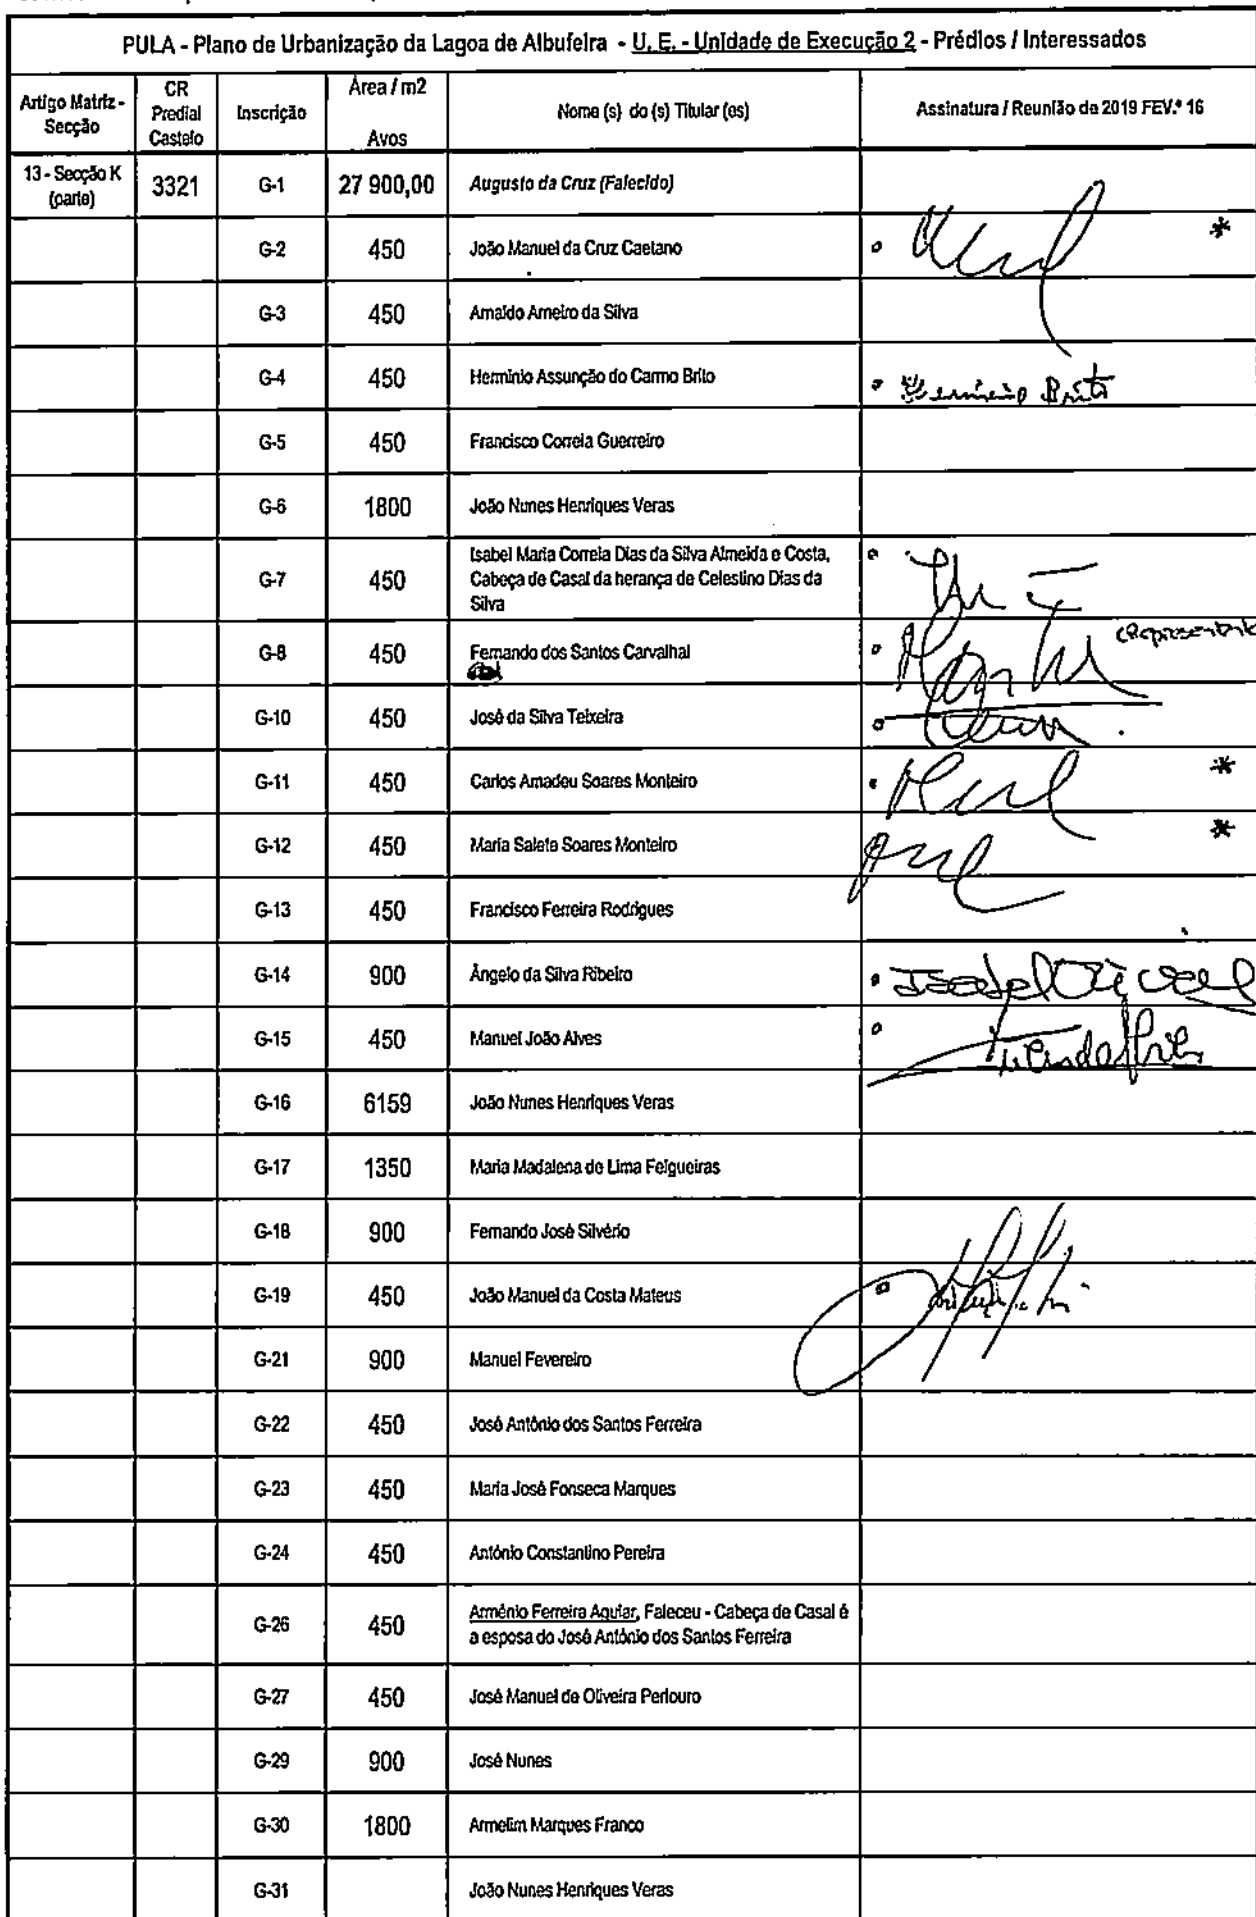 PULA - Plano de Urbanização da Lagoa de Albufeira - U. E. - Unidade de Execução 2 - Prédios / Interessados
Artigo Matriz - Secção CR Predial Castelo Inscrição Área / m2 Avos Nome (s) do (s) Titular (es) Assinatura / Reunião de 2019 FEV.º 16
13 - Secção K (parte) 3321 G-1 27 900,00 Augusto da Cruz (Falecido)
G-2 450 João Manuel da Cruz Caetano *
G-3 450 Arnaldo Arneiro da Silva
G-4 450 Hermínio Assunção do Carmo Brito Hermínio Brito
G-5 450 Francisco Correia Guerreiro
G-6 1800 João Nunes Henriques Veras
G-7 450 Isabel Maria Correia Dias da Silva Almeida e Costa,
Cabeça de Casal da herança de Celestino Dias da
Silva
G-8 450 Fernando dos Santos Carvalhal
G-10 450 José da Silva Teixeira
G-11 450 Carlos Amadeu Soares Monteiro *
G-12 450 Maria Salete Soares Monteiro *
G-13 450 Francisco Ferreira Rodrigues
G-14 900 Ângelo da Silva Ribeiro
G-15 450 Manuel João Alves
G-16 6159 João Nunes Henriques Veras
G-17 1350 Maria Madalena de Lima Felgueiras
G-18 900 Fernando José Silvério
G-19 450 João Manuel da Costa Mateus
G-21 900 Manuel Fevereiro
G-22 450 José António dos Santos Ferreira
G-23 450 Maria José Fonseca Marques
G-24 450 António Constantino Pereira
G-26 450 Arménio Ferreira Aguiar, Faleceu - Cabeça de Casal é
a esposa do José António dos Santos Ferreira
G-27 450 José Manuel de Oliveira Perlouro
G-29 900 José Nunes
G-30 1800 Armelim Marques Franco
G-31 João Nunes Henriques Veras